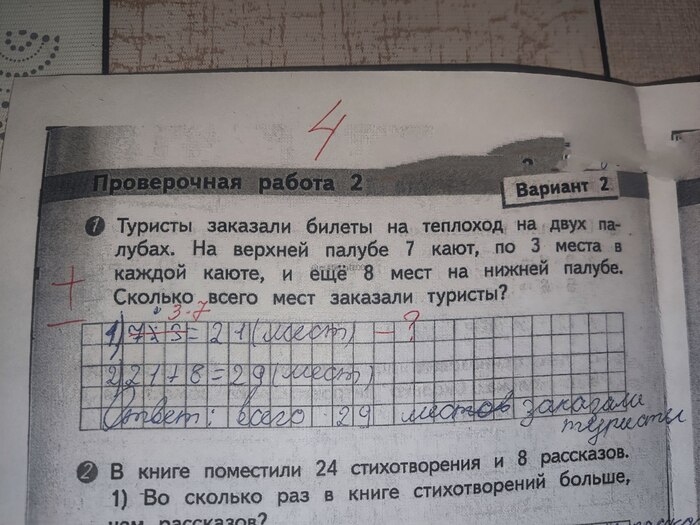 4
Проверочная работа 2
Вариант 2
1 Туристы заказали билеты на теплоход на двух па-
лубах. На верхней палубе 7 кают, по 3 места в
каждой каюте, и ещё 8 мест на нижней палубе.
Сколько всего мест заказали туристы?
+
−
3·7
1) 7×3=21(мест) − ?
2) 21+8=29(мест)
Ответ: всего 29 местов заказали
туристы
2 В книге поместили 24 стихотворения и 8 рассказов.
1) Во сколько раз в книге стихотворений больше,
чем рассказов?